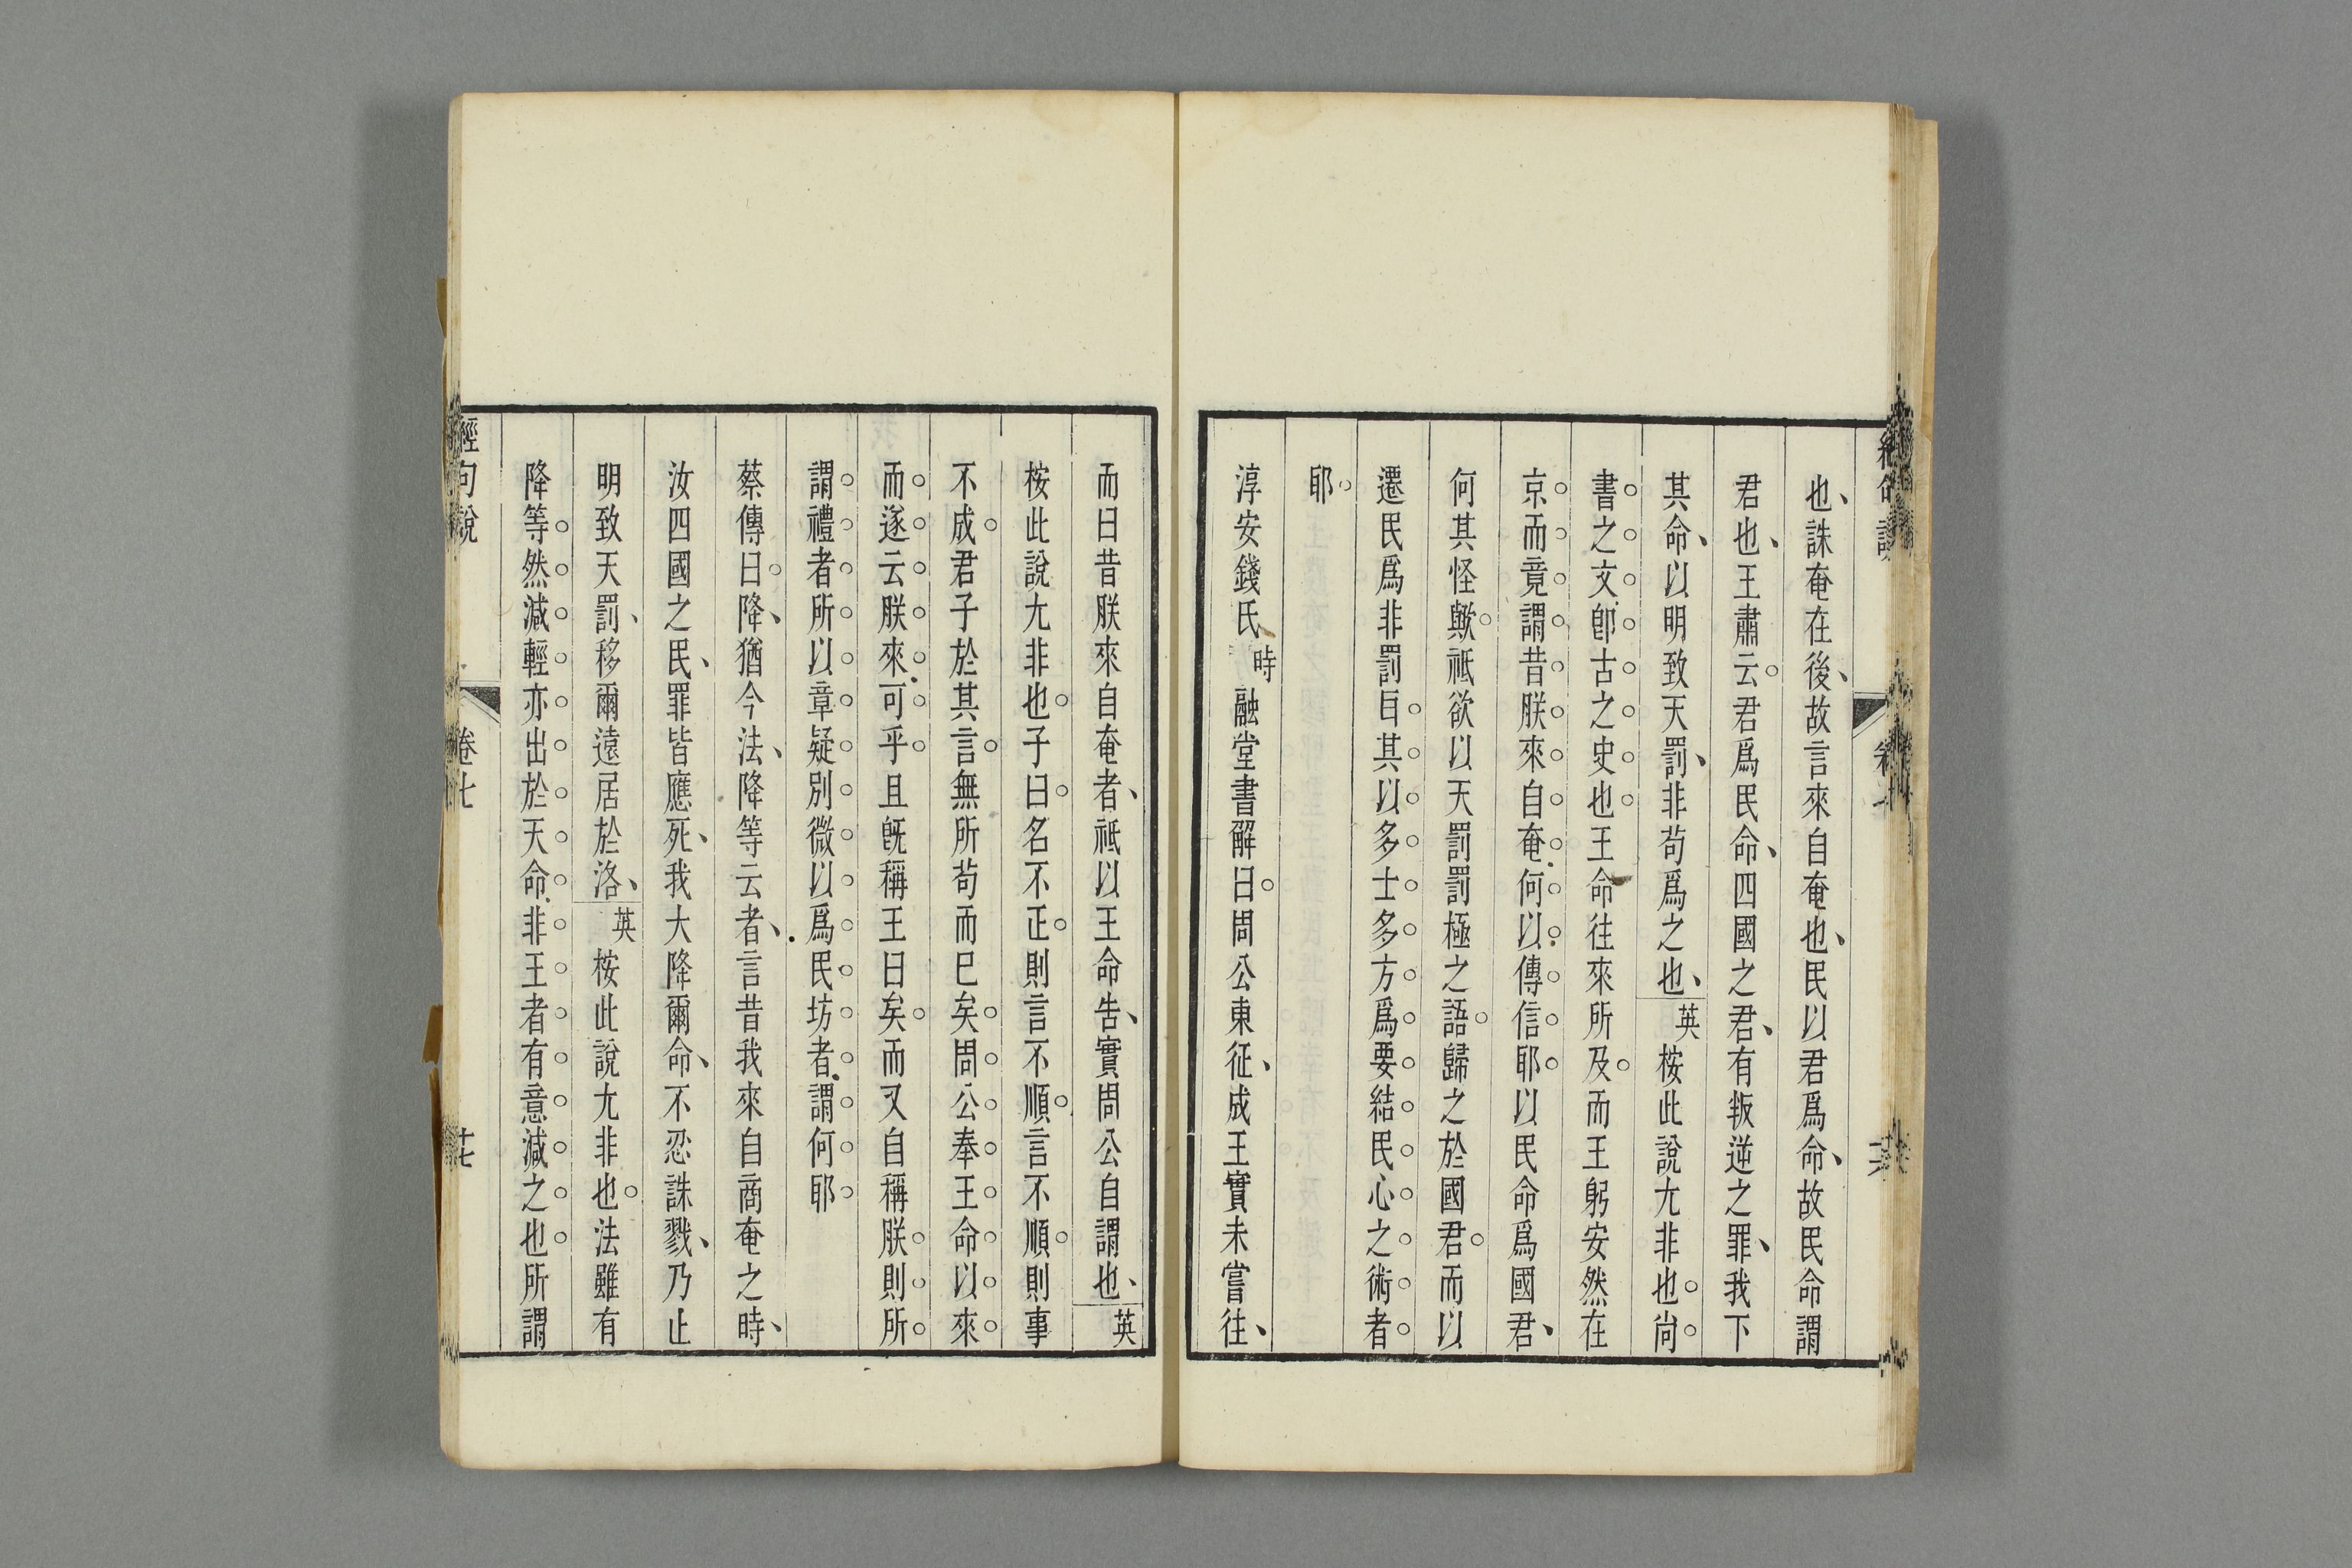 也、誅奄在後、故言來自奄也、民以君爲命、故民命謂
君也、王肅云。君爲民命、四國之君、有叛逆之罪、我下
其命、以明致天罰、非苟爲之也、英桉此說尢非也。尙。
書。之。文。卽。古。之。史。也。王命往來所及。而王躬安然在
京。而。竟。謂。昔。朕。來。自。奄。何。以。傳。信。耶。以民命爲國君、
何其怪歟。祗欲以天罰罰極之語。歸之於國君。而以
遷民爲非罰㠯。其。以。多。士。多。方。爲。要。結。民。心。之。術。者。
耶。
淳安錢氏時融堂書解曰。周公東征、成王實未嘗往、
而曰昔朕來自奄者、祗以王命告、實周公自謂也、英
桉此說尢非也。子曰。名不正。則言不順。言不順。則事
不成。君子於其言。無所苟而已矣。周。公。奉。王。命。以。來。
而。遂。云。朕。來。可。乎。且旣稱王曰矣。而又自稱朕。則。所。
謂。禮。者。所。以。章。疑。別。微。以。爲。民。坊。者。謂。何。耶。
蔡傳曰。降、猶今法、降等云者、言昔我來自商奄之時、
汝四國之民、罪皆應死、我大降爾命、不忍誅戮、乃止
明致天罰、移爾遠居於洛、英桉此說尢非也。法雖有
降等。然。減。輕。亦。出。於。天。命。非。王。者。有。意。減。之。也。所謂
經句說 卷七 十七